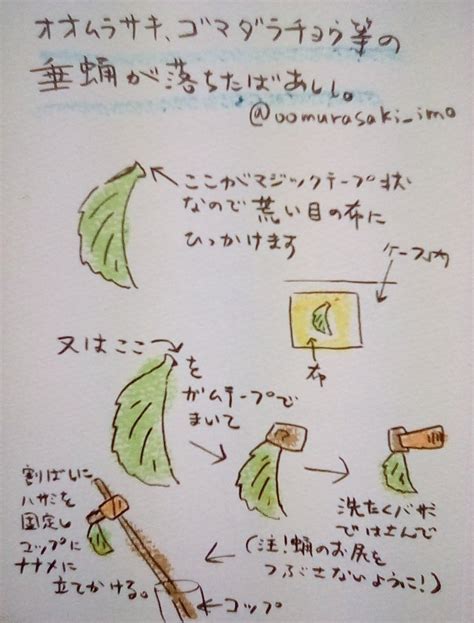 オオムラサキ、ゴマダラチョウ等の
垂蛹が落ちたばあい。
@oomurasaki_imo
ここがマジックテープ状
なので荒い目の布に
ひっかけます
ケース内
布
又はここ
を
ガムテープで
まいて
洗たくバサミ
ではさんで
(注!蛹のお尻を
つぶさないように!)
割ばしに
ハサミを
固定し
コップに
ナナメに
立てかける。
コップ